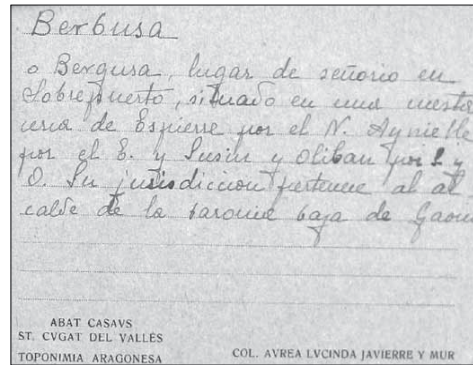 Berbusa
o Bergusa, lugar de señorio en
Sobrepuerto, situado en una cuesta
cerca de Espierre por el N. Aynielle
por el E. y Susin y Oliban por S. y
O. Su jurisdiccion pertenece al al
calde de la baronia baja de Gavin
ABAT CASAVS
ST. CVGAT DEL VALLÉS
TOPONIMIA ARAGONESA
COL. AVREA LVCINDA JAVIERRE Y MUR